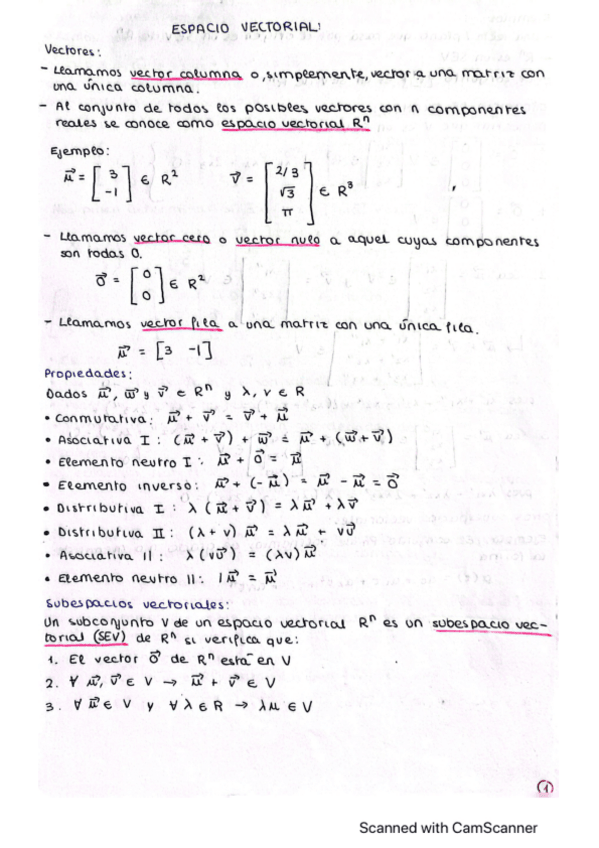 ESPACIO VECTORIAL:
Vectores:
- Llamamos vector columna o, simplemente, vector a una matriz con
una única columna.
- Al conjunto de todos los posibles vectores con n componentes
reales se conoce como espacio vectorial Rⁿ
Ejemplo:
u⃗ = [3 -1] ∈ R² v⃗ = [2/3 √3 π] ∈ R³
- Llamamos vector cero o vector nulo a aquel cuyas componentes
son todas 0.
0⃗ = [0 0] ∈ R²
- Llamamos vector fila a una matriz con una única fila.
u⃗ = [3 -1]
Propiedades:
Dados u⃗, w⃗ y v⃗ ∈ Rⁿ y λ, ν ∈ R
• Conmutativa: u⃗ + v⃗ = v⃗ + u⃗
• Asociativa I: (u⃗ + v⃗) + w⃗ = u⃗ + (w⃗ + v⃗)
• Elemento neutro I: u⃗ + 0⃗ = u⃗
• Elemento inverso: u⃗ + (-u⃗) = u⃗ - u⃗ = 0⃗
• Distributiva I: λ (u⃗ + v⃗) = λu⃗ + λv⃗
• Distributiva II: (λ + ν) u⃗ = λu⃗ + νu⃗
• Asociativa II: λ(νu⃗) = (λν)u⃗
• Elemento neutro II: 1u⃗ = u⃗
Subespacios vectoriales:
Un subconjunto V de un espacio vectorial Rⁿ es un subespacio vec-
torial (SEV) de Rⁿ si verifica que:
1. El vector 0⃗ de Rⁿ está en V
2. ∀ u⃗, v⃗ ∈ V → u⃗ + v⃗ ∈ V
3. ∀ u⃗ ∈ V y ∀ λ ∈ R → λu ∈ V
1
Scanned with CamScanner